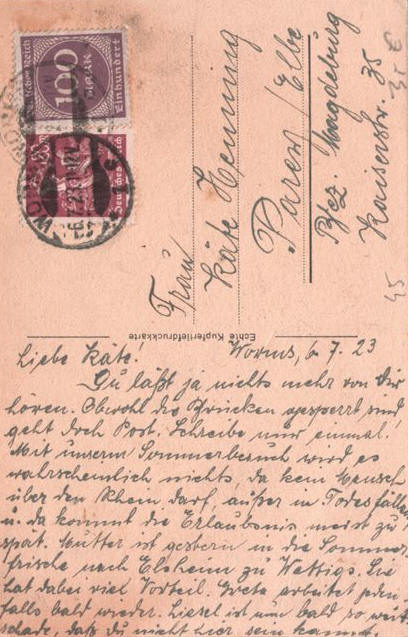 Deutsches Reich
100
MARK
Einhundert
Deutsches Reich
WORMS
Frau
Käte Henning
Parey / Elbe
Bez. Magdeburg
Kaiserstr. 35
Echte Kupfertiefdruckkarte
Liebe Käte! Worms, 6 7. 23
Du läßt ja nichts mehr von Dir
hören. Obwohl die Brücken gesperrt sind
geht doch Post. Schreibe uns einmal.
Mit unserm Sommerbesuch wird es
wahrscheinlich nichts, da kein Mensch
über den Rhein darf, außer in Todesfällen
u. da kommt die Erlaubnis meist zu
spät. Mutter ist gestern in die Sommer
frische nach Elsheim zu Wettigs. Sie
hat dabei viel Vorteil. Greta arbeitet jeden
falls bald wieder. Liesel ist nun bald so weit
schade, daß du nicht hier sein kannst